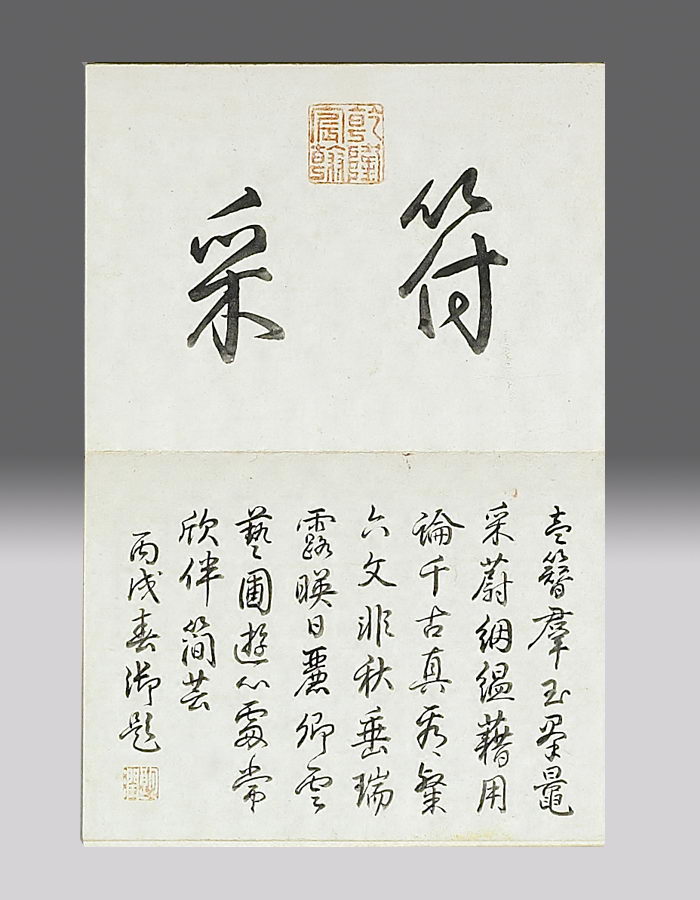 乾隆宸翰
符采
盍簪羣玉鼂
采蔚絪縕藉用
論千古真看粲
六文非秋垂瑞
露暎日麗卿雲
藝圃遊心處常
欣伴簡芸
丙戌春御題